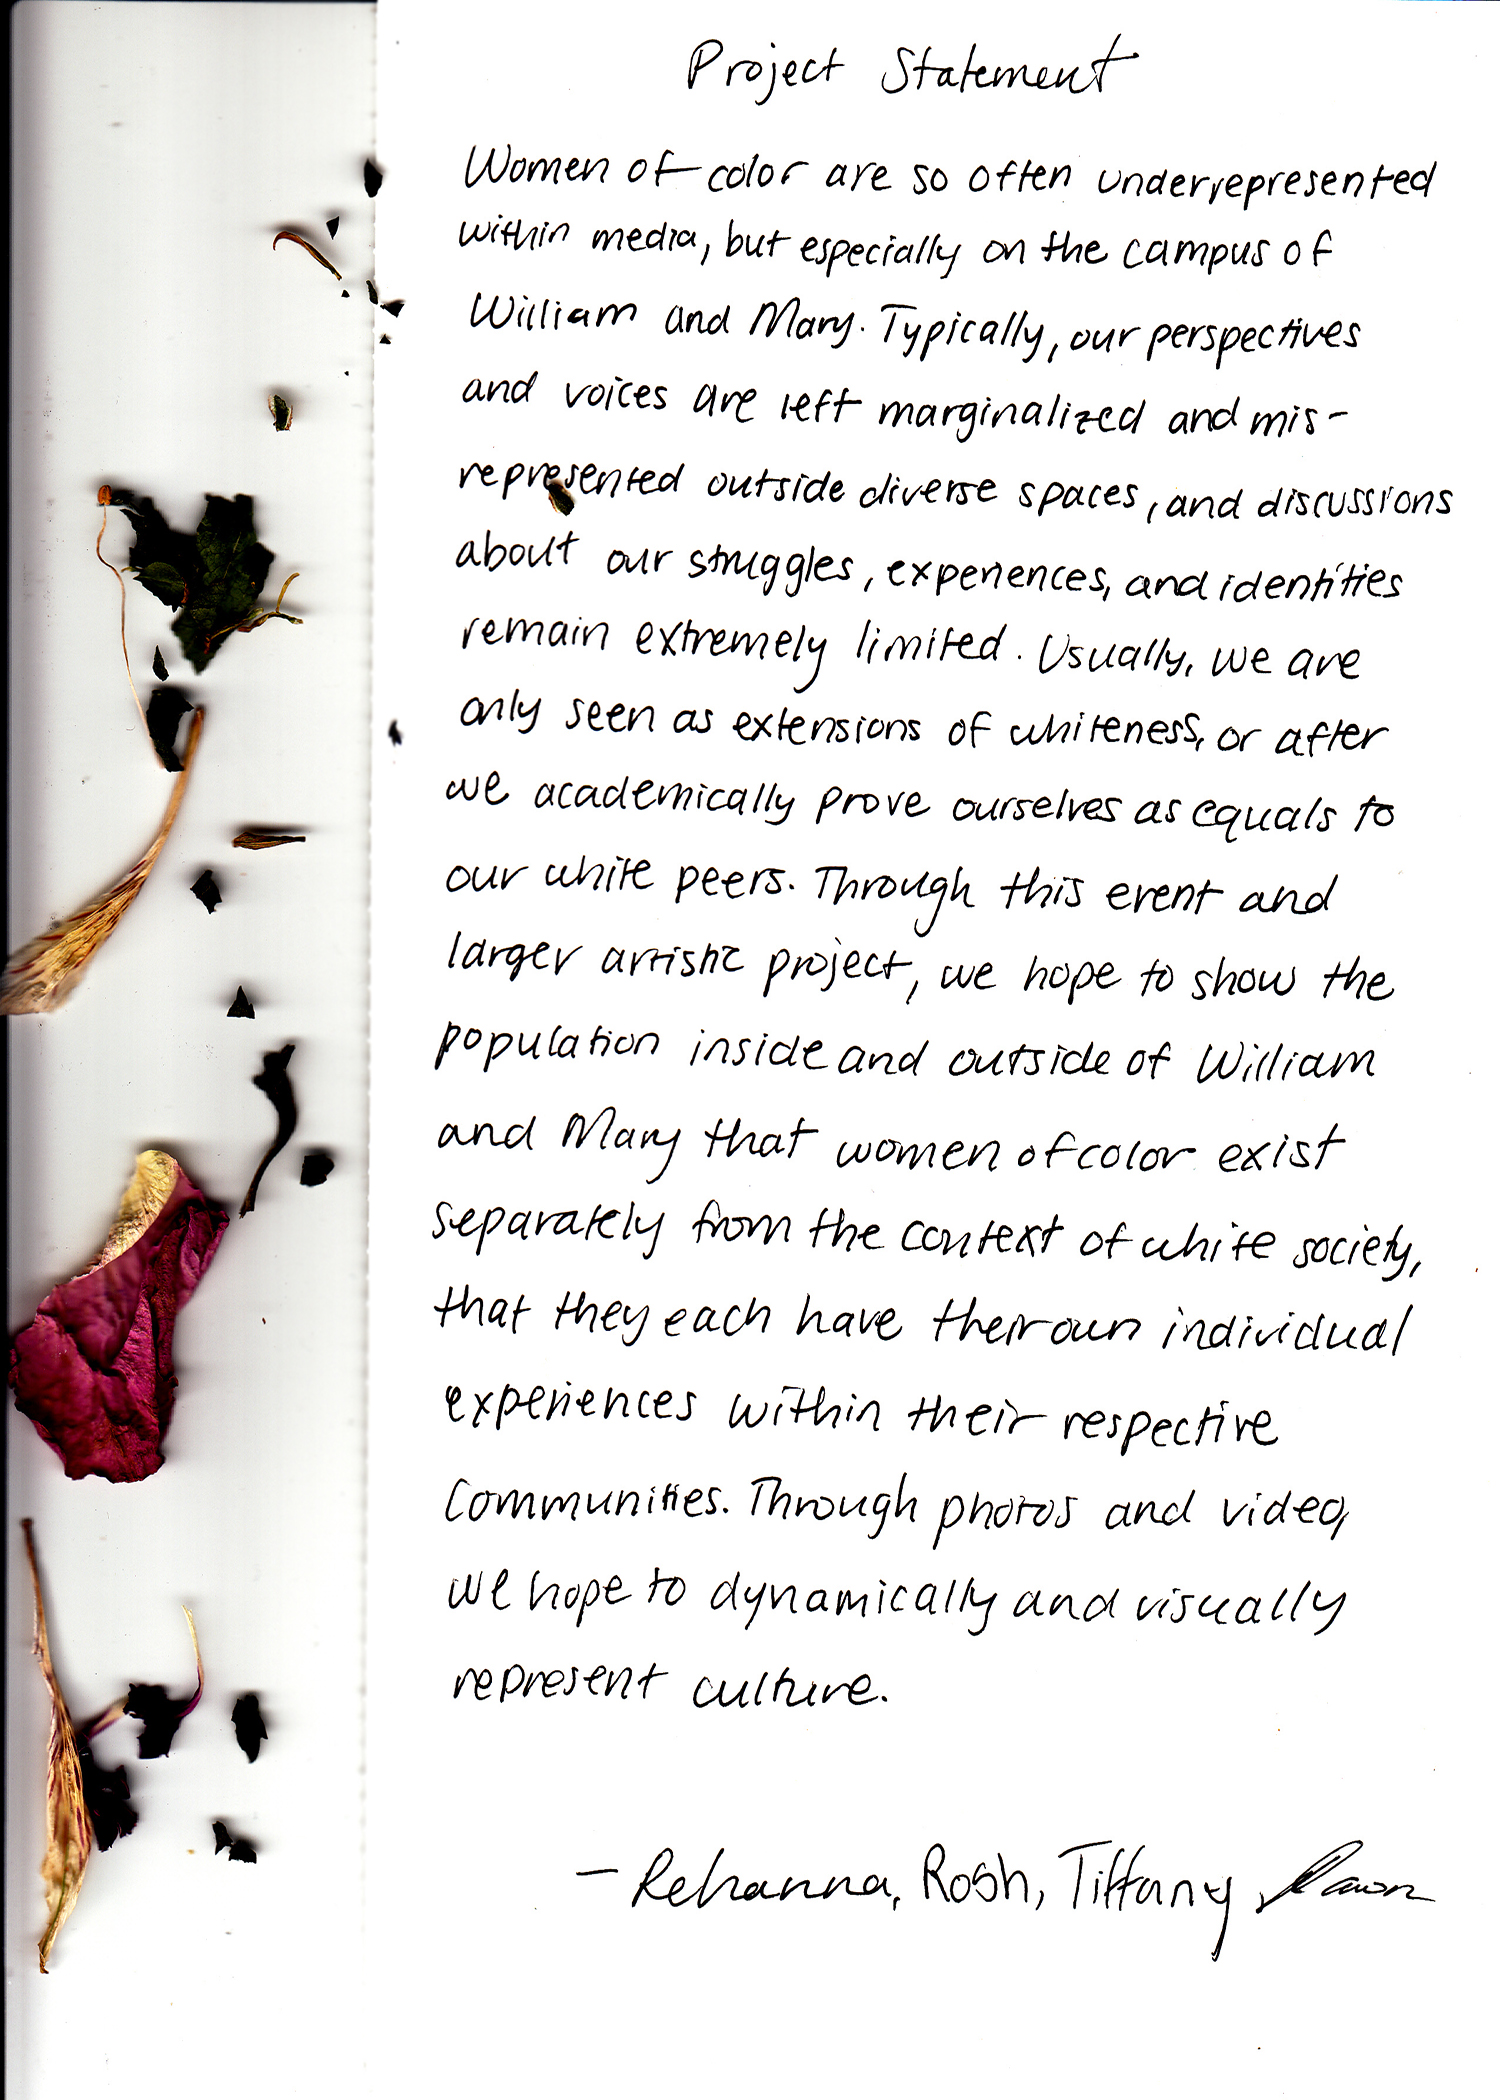 Project Statement
Women of color are so often underrepresented
within media, but especially on the campus of
William and Mary. Typically, our perspectives
and voices are left marginalized and mis-
represented outside diverse spaces, and discussions
about our struggles, experiences, and identities
remain extremely limited. Usually, we are
only seen as extensions of whiteness, or after
we academically prove ourselves as equals to
our white peers. Through this event and
larger artistic project, we hope to show the
population inside and outside of William
and Mary that women of color exist
separately from the context of white society,
that they each have their own individual
experiences within their respective
communities. Through photos and video,
we hope to dynamically and visually
represent culture.
- Rehanna, Rosh, Tiffany,